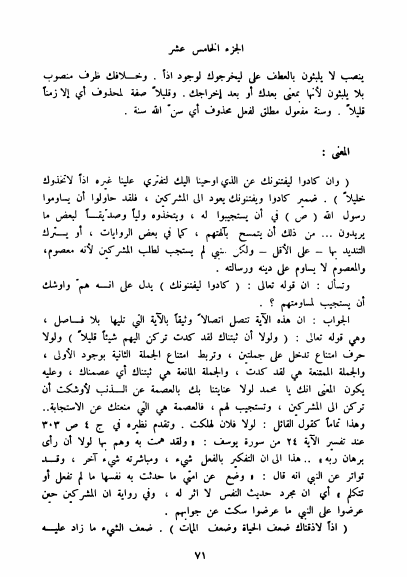 الجزء الخامس عشر
ينصب لا يلبثون بالعطف على ليخرجوك لوجود اذاً . وخلافك ظرف منصوب
بلا يلبثون لأنها بمعنى بعدك أو بعد إخراجك . وقليلاً صفة لمحذوف أي إلا زمناً
قليلاً . وسنة مفعول مطلق لفعل محذوف أي سن الله سنة .
المعنى :
( وان كادوا ليفتنونك عن الذي اوحينا اليك لتفتري علينا غيره اذاً لاتخذوك
خليلاً ) . ضمير كادوا ويفتنونك يعود الى المشركين ، فلقد حاولوا أن يساوموا
رسول الله ( ص ) في أن يستجيبوا له ، ويتخذوه ولياً وصديقاً لبعض ما
يريدون ... من ذلك أن يتمسح بآلهتهم ، كما في بعض الروايات ، أو يترك
التنديد بها – على الأقل – ولكن النبي لم يستجب لطلب المشركين لأنه معصوم،
والمعصوم لا يساوم على دينه ورسالته .
وتسأل : ان قوله تعالى : ( كادوا ليفتنونك ) يدل على انه همّ واوشك
أن يستجيب لمساومتهم ؟ .
الجواب : ان هذه الآية تتصل اتصالاً وثيقاً بالآية التي تليها بلا فاصل ،
وهي قوله تعالى : ( ولولا أن ثبتناك لقد كدت تركن اليهم شيئاً قليلاً ) ولولا
حرف امتناع تدخل على جملتين ، وتربط امتناع الجملة الثانية بوجود الأولى ،
والجملة الممتنعة هي لقد كدت ، والجملة المانعة هي ثبتناك أي عصمناك ، وعليه
يكون المعنى انك يا محمد لولا عنايتنا بك بالعصمة عن الذنب لأوشكت أن
تركن الى المشركين ، وتستجيب لهم ، فالعصمة هي التي منعتك عن الاستجابة..
وهذا تماماً كقول القائل : لولا فلان لهلكت . وتقدم نظيره في ج ٤ ص ٣٠٣
عند تفسير الآية ٢٤ من سورة يوسف : « ولقد همت به وهم بها لولا أن رأى
برهان ربه » .. هذا الى ان التفكير بالفعل شيء ، ومباشرته شيء آخر ، وقد
تواتر عن النبي انه قال : « وضع عن امتي ما حدثت به نفسها ما لم تفعل أو
تتكلم » أي ان مجرد حديث النفس لا اثر له ، وفي رواية ان المشركين حين
عرضوا على النبي ما عرضوا سكت عن جوابهم .
( اذاً لاذقناك ضعف الحياة وضعف المات ) . ضعف الشيء ما زاد عليه
٧١